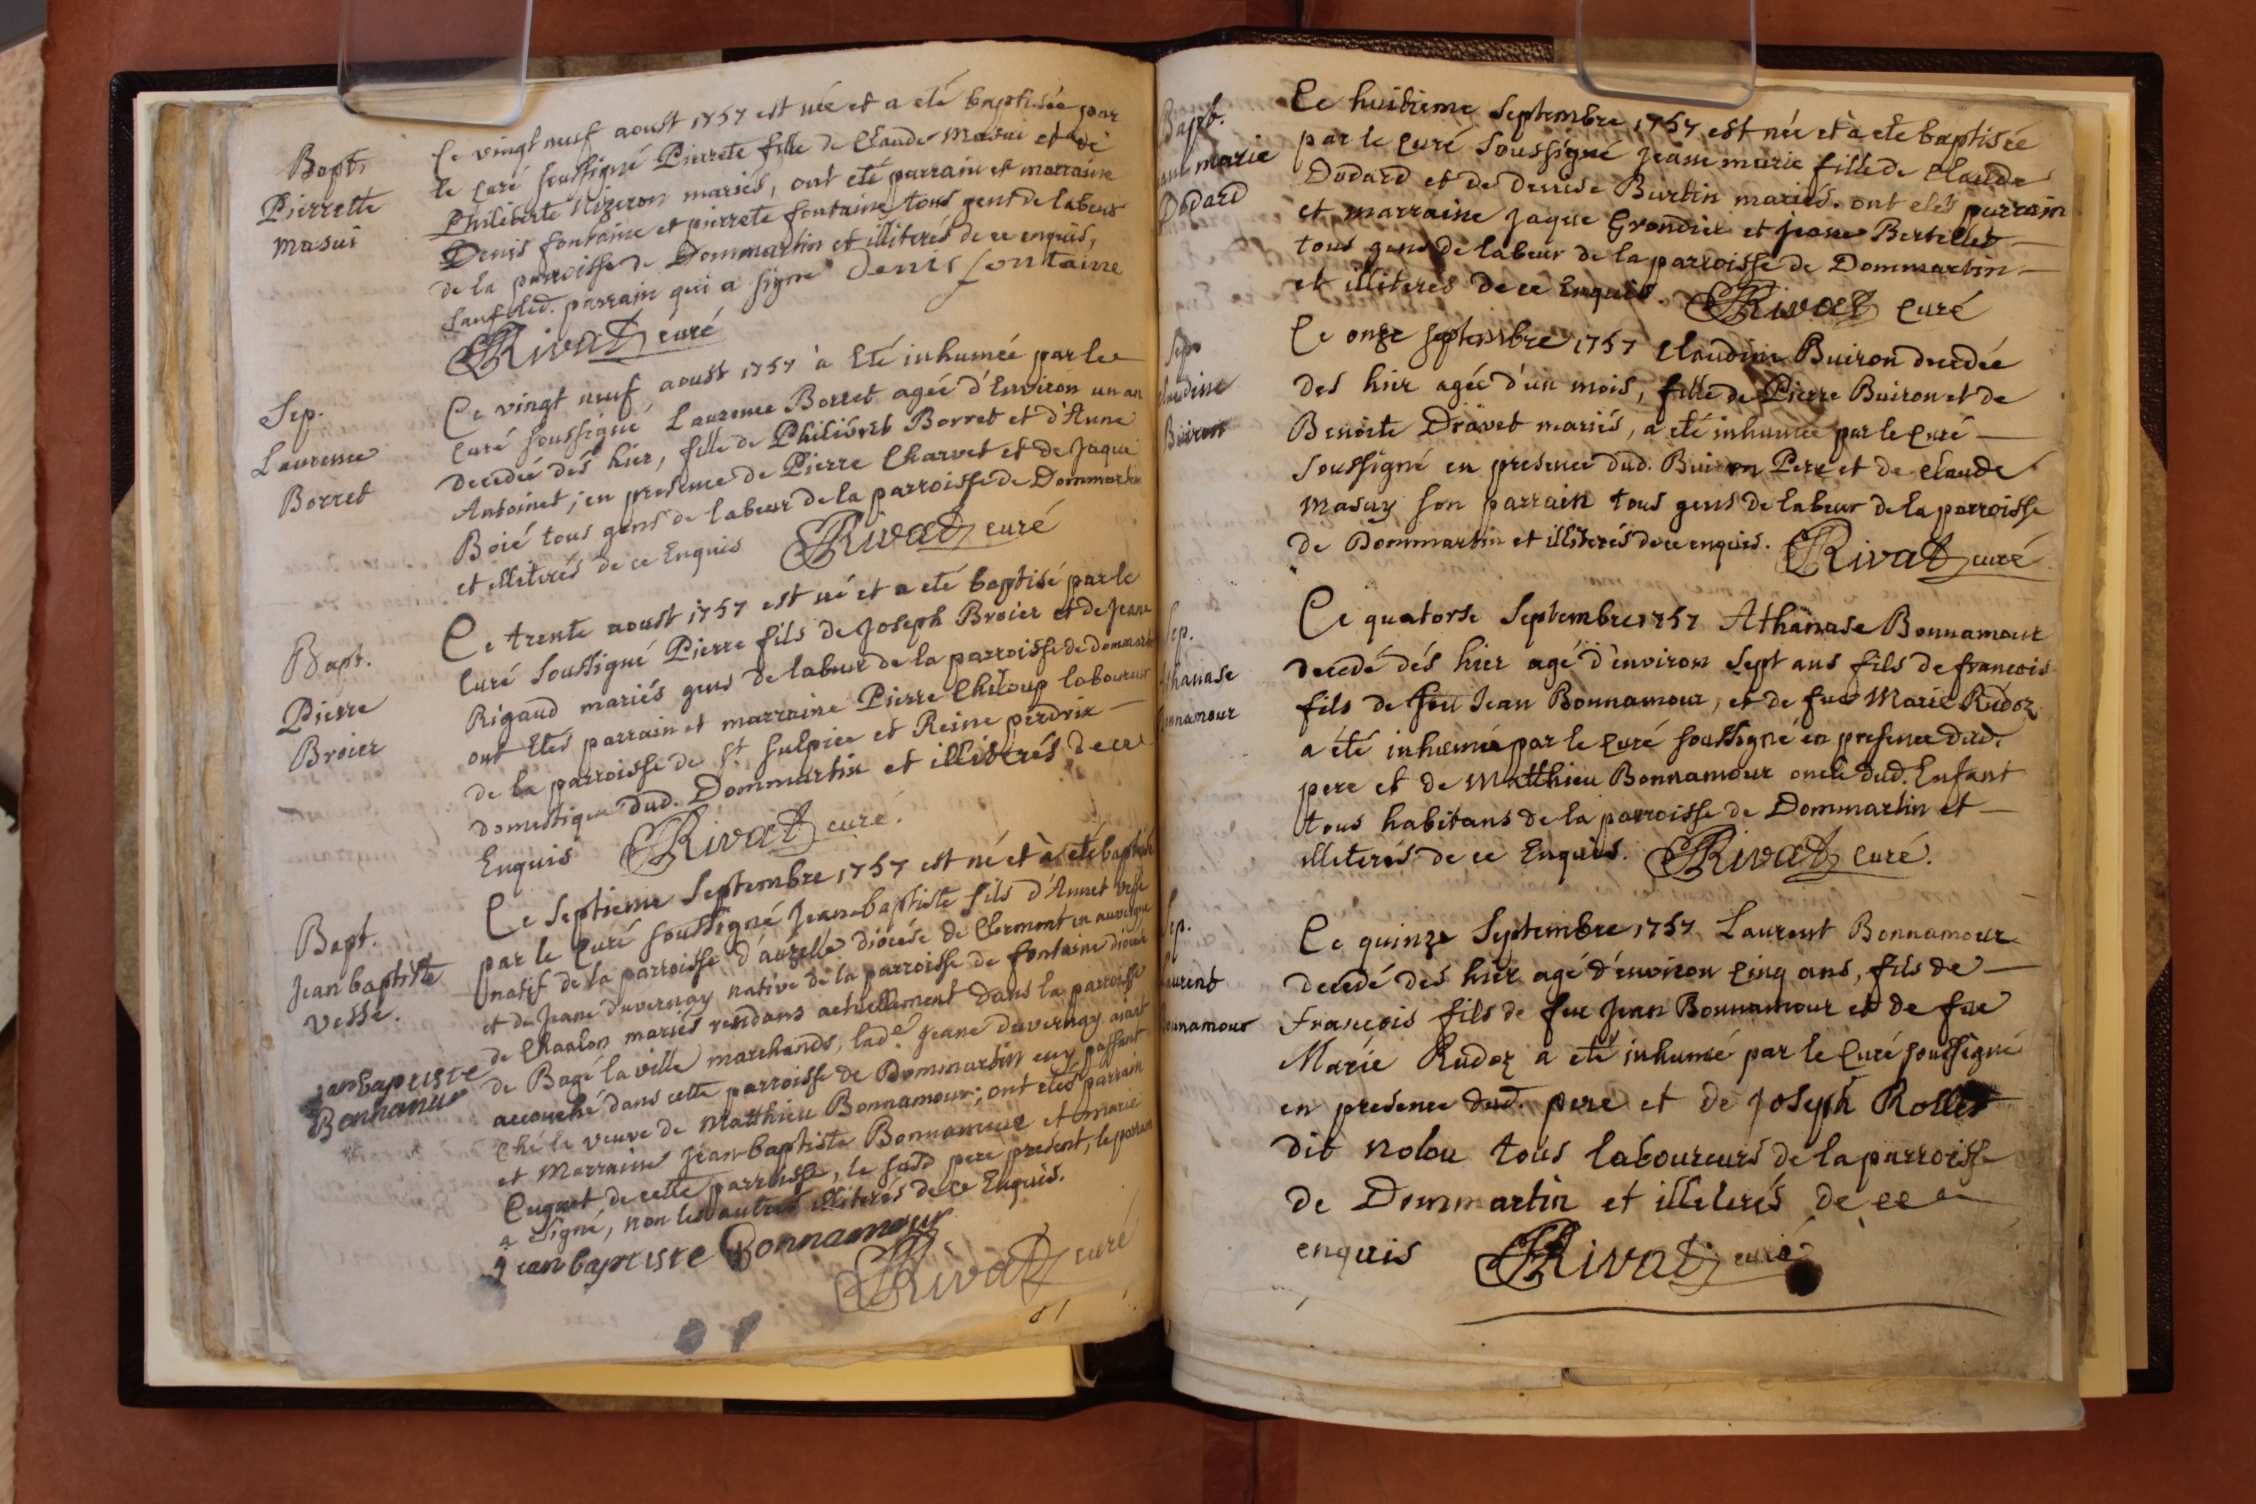 Bapt.
Pierrette
masui
Ce vingt neuf aoust 1757 est née et a eté baptisée par
le Curé soussigné Pierrete fille de Claude Masui et de
Philiberte Nizeron mariés, ont eté parrain et marraine
Denis fontaine et pierrete fontaine tous gent de labeur
de la parroisse de Dommartin et illiterés de ce enquis,
sauf led. parrain qui a signé denis fontaine
Rivat curé
Sep.
Laurence
Borret
Ce vingt neuf aoust 1757 à Eté inhumée par le
Curé soussigné Laurence Borret agée d'Environ un an
decedée dés hier, fille de Philibert Borret et d'Anne
Antoinet; en presence de Pierre Charvet et de Jaque
Boié tous gens de labeur de la parroisse de Dommartin
et illiterés de ce Enquis Rivat curé
Bapt.
Pierre
Broier
Ce trente aoust 1757 est né et a eté baptisé par le
Curé Soussigné Pierre fils de Joseph Broier et de Jeane
Rigaud mariés gens de labeur de la parroisse de dommartin
ont Etés parrain et marraine Pierre Chiloup laboureur
de la parroisse de St sulpice et Reine perdrix
domestique dud. Dommartin et illiterés de ce
Enquis Rivat curé.
Bapt.
Jean baptiste
vesse.
Ce Septieme Septembre 1757 est né et à eté baptisé
par le Curé soussigné Jean-baptiste fils d'Annet vesse
natif de la parroisse d'auzelle diocése de Clermont en auvergne
et de Jeane duvernay native de la parroisse de fontaine diocése
de Chaalon mariés residans actuellement dans la parroisse
de Bagé la ville marchands, lade. Jeane duvernay aiant
accouché dans cette parroisse de Dommartin en y passant
Ché la veuve de Matthieu Bonnamour; ont etés parrain
et Marraine Jean-baptiste Bonnamour et marie
Cugnet de cette parroisse, le susd pere present, le parrain
a signé, non les autres illiterés de ce Enquis.
jeanbaptiste
Bonnamour
jean baptiste Bonnamour
Rivat curé
Bapt.
marie
Dodard
Ce huitieme Septembre 1757 est née et à eté baptisée
par le Curé Soussigné Jeane marie fille de Claude
Dodard et de Denise Burtin mariés. ont etés parrain
et marraine Jaque Grondier et Jeane Bertellet
tous gens de labeur de la parroisse de Dommartin
et illiterés De ce Enquis. Rivat Curé
Sep.
Claudine
Buiron
Ce onze Septembre 1757 Claudine Buiron decedée
des hier agée d'un mois, fille de Pierre Buiron et de
Benoite Dravet mariés, a eté inhumée par le Curé
Soussigné en presence dud. Buiron Pere et de Claude
Masuy son parrain tous gens de labeur de la parroisse
de Dommartin et illiterés de ce enquis. Rivat curé
Sep.
Athanase
Bonnamour
Ce quatorse Septembre 1757 Athanase Bonnamour
decedé dés hier agé d'environ Sept ans fils de francois
fils de feu Jean Bonnamour, et de fue Marie Rudoz
a été inhumé par le Curé soussigné en presence dud.
pere et de Matthieu Bonnamour oncle dud. Enfant
tous habitans de la parroisse de Dommartin et
illiterés de ce Enquis. Rivat Curé.
Sep.
Laurent
Bonnamour
Ce quinze Septembre 1757 Laurent Bonnamour
decedé des hier agé d'environ Cinq ans, fils de
Francois fils de feu Jean Bonnamour et de fue
Marie Rudoz a eté inhumé par le Curé soussigné
en presence dud. pere et de Joseph Rollet
dit nolou tous laboureurs de la parroisse
de Dommartin et illeterés de ce
enquis Rivat curé